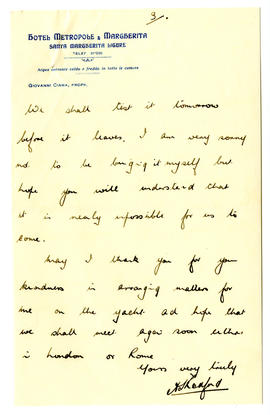 3.
HOTEL METROPOLE & MARGHERITA
SANTA MARGHERITA LIGURE
Acqua corrente calda e fredda in tutte le camere
GIOVANNI CIANA, PROPR.
We shall test it tomorrow
before it leaves. I am very sorry
not to be bringing it myself but
hope you will understand that
it is nearly impossible for us to
come.
May I thank you for your
kindness in arranging matters for
me on the yacht ad hope that
we shall meet again soon either
in London or Rome
Yours very truly